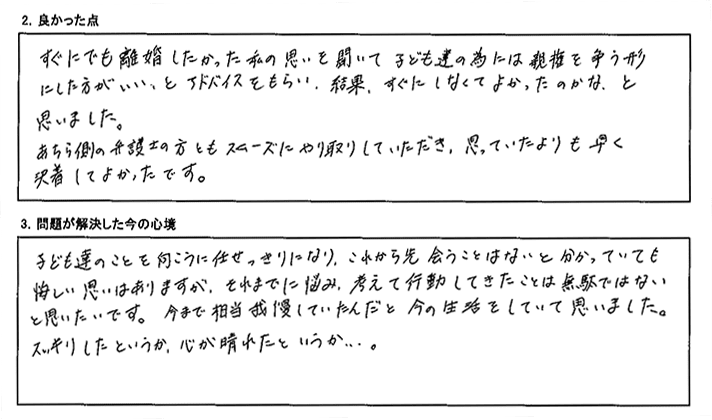 2. 良かった点
すぐにでも離婚したかった私の思いを聞いて子ども達の為には親権を争う形
にした方がいい、とアドバイスをもらい、結果、すぐにしなくてよかったのかな、と
思いました。
あちら側の弁護士の方ともスムーズにやり取りしていただき、思っていたよりも早く
決着してよかったです。
3. 問題が解決した今の心境
子ども達のことを向こうに任せっきりになり、これから先会うことはないと分かっていても
悔しい思いはありますが、それまでに悩み、考えて行動してきたことは無駄ではない
と思いたいです。今まで相当我慢していたんだと今の生活をしていて思いました。
スッキリしたというか、心が晴れたというか…。